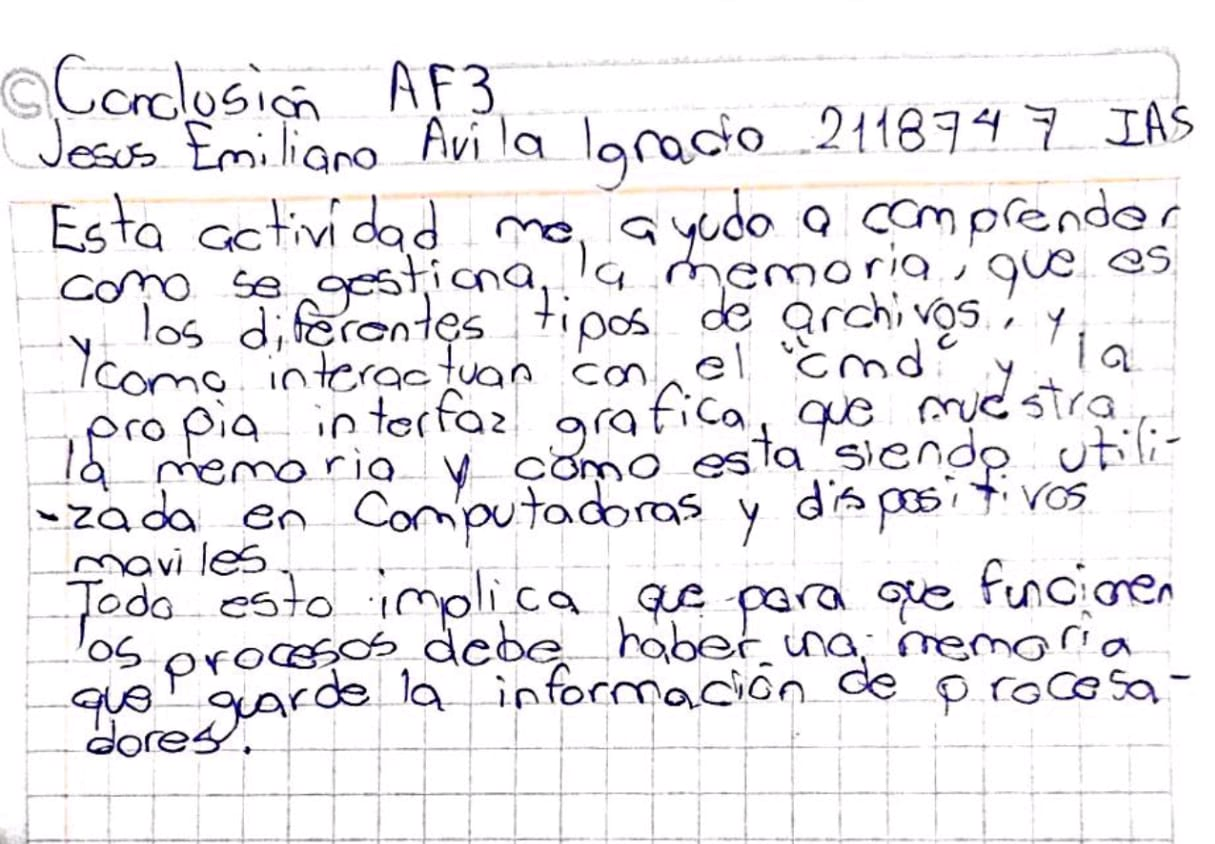 © Conclusión AF3
Jesus Emiliano Avila Ignacio 2118747 IAS
Esta actividad me ayudo a comprender
como se gestiona la memoria, que es
y los diferentes tipos de archivos, y
como interactuan con el "cmd" y la
propia interfaz grafica que muestra
la memoria y como esta siendo utili-
-zada en Computadoras y dispositivos
moviles.
Todo esto implica que para que funcionen
los procesos debe haber una memoria
que guarde la información de procesa-
dores.